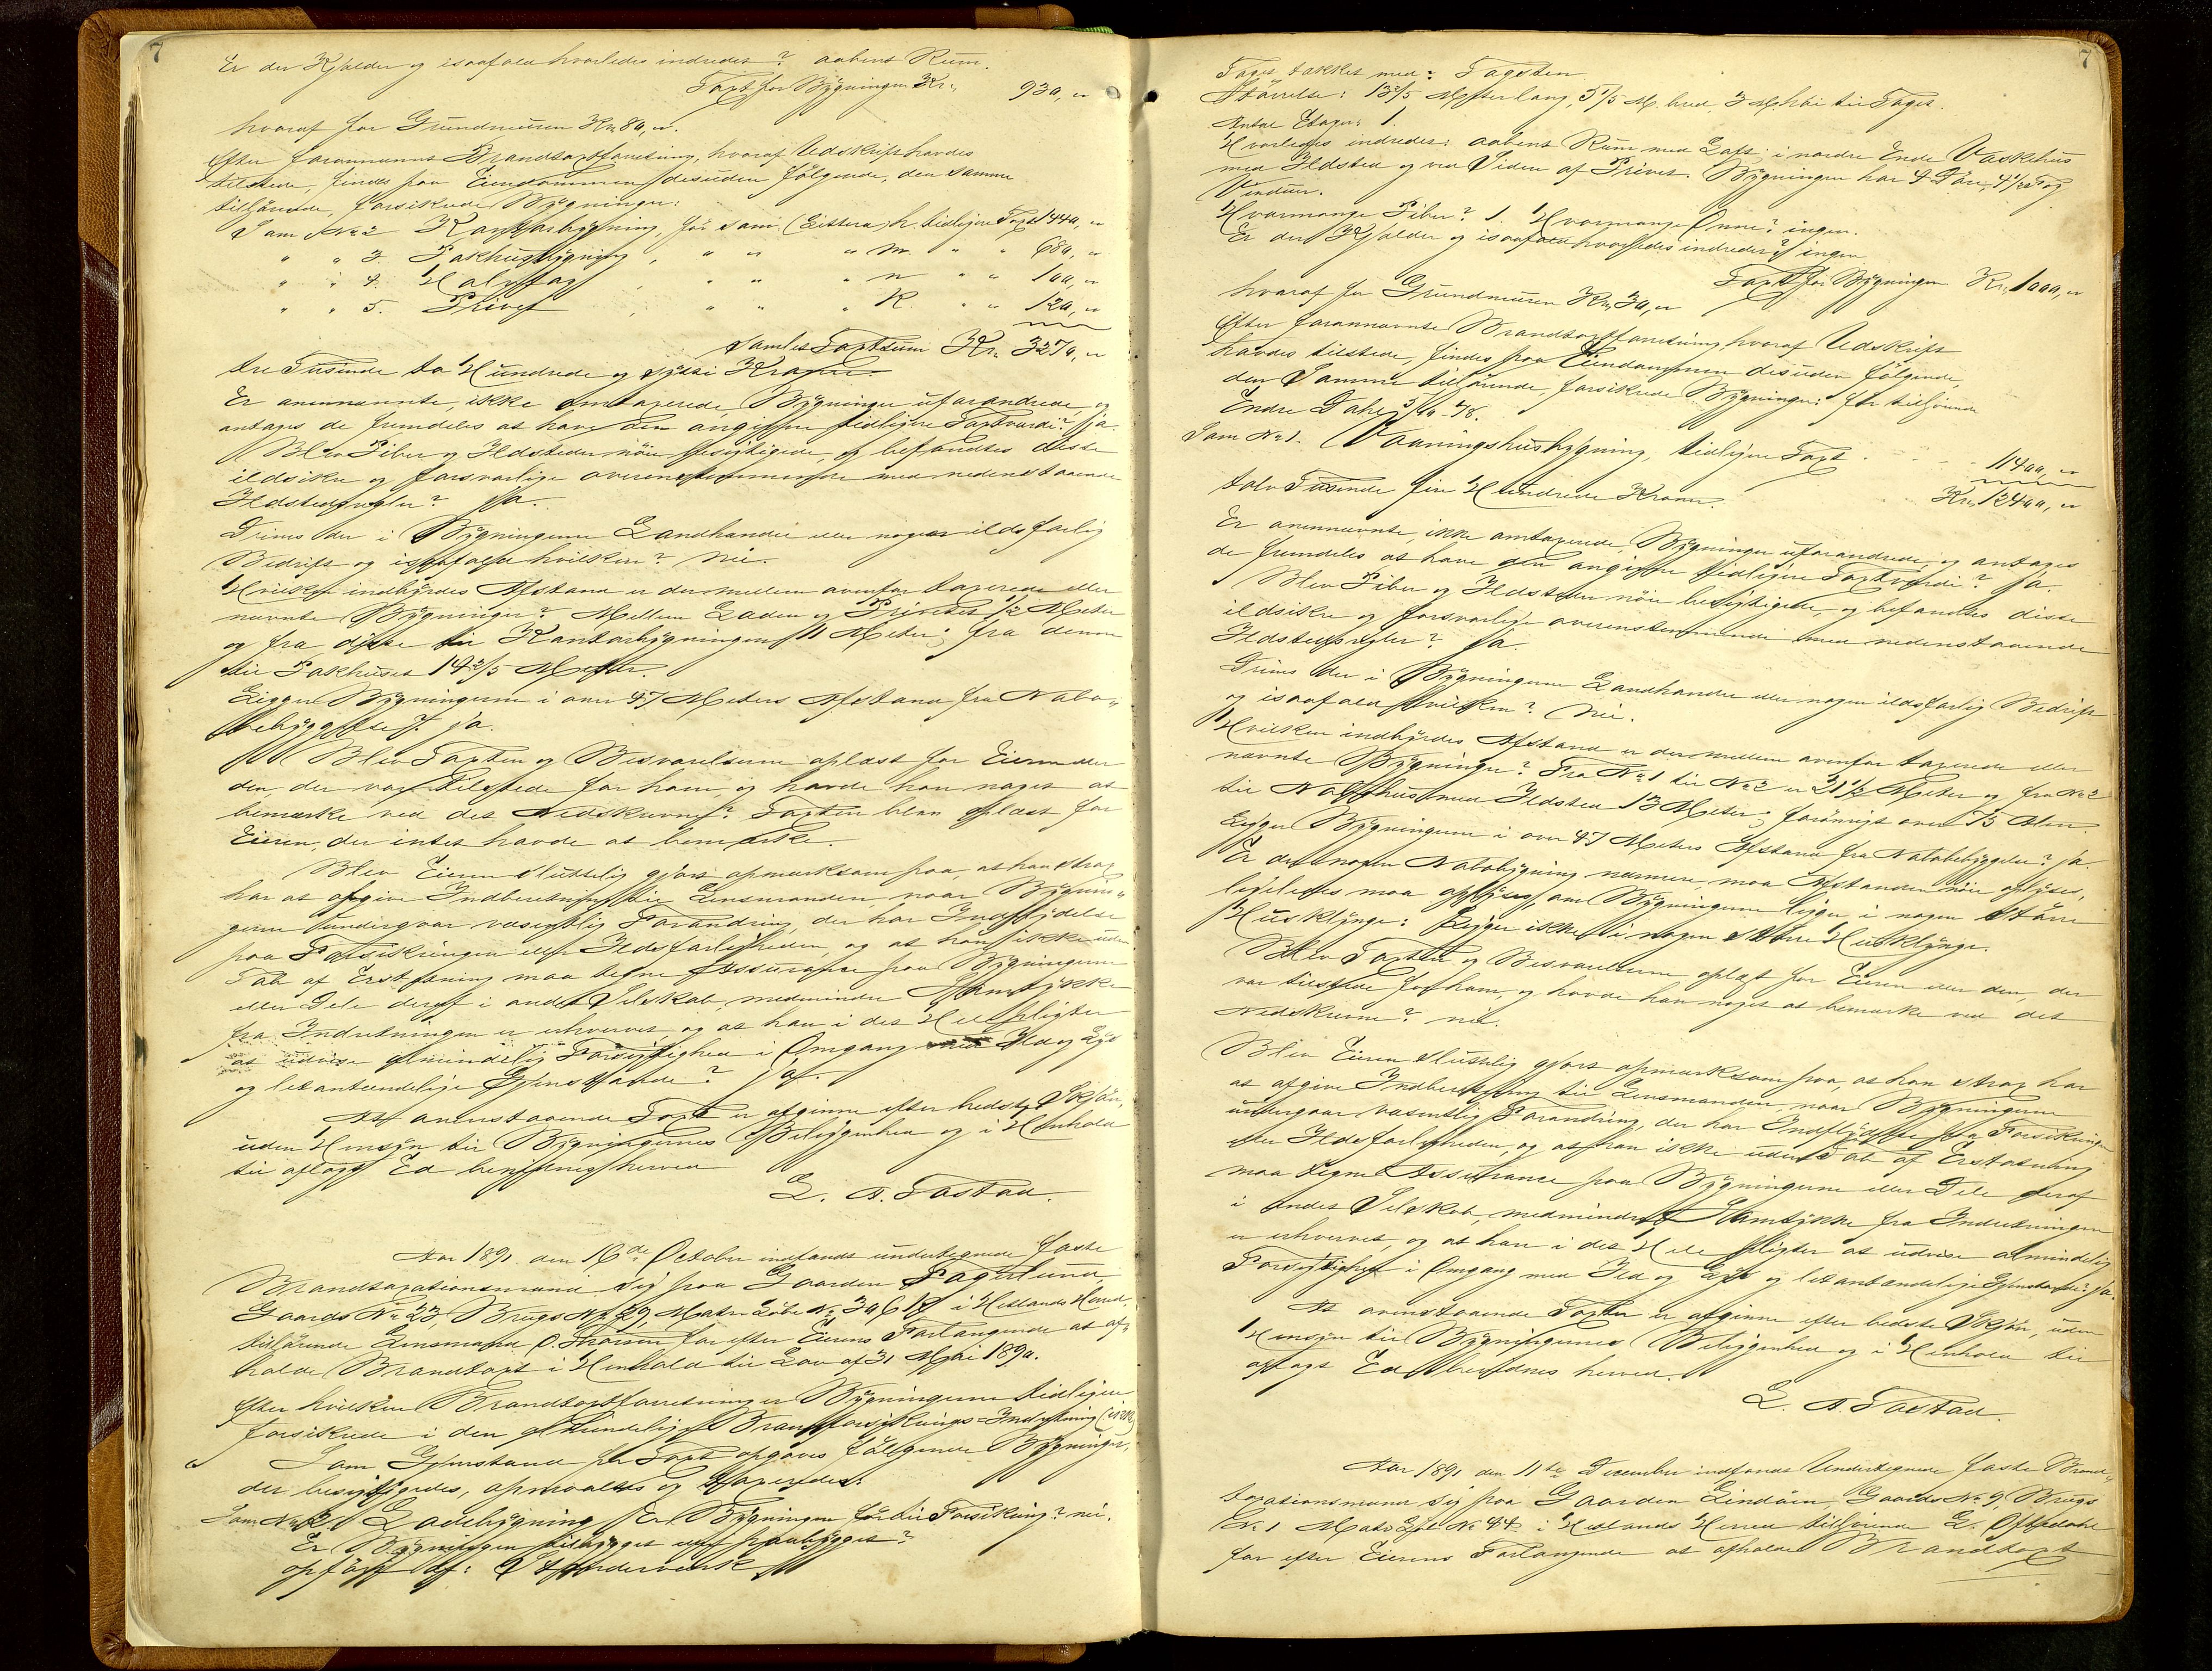 7
Er der Kjelder og isaafald hvorledes indredet? aabent Rum.
Taxt for Bygningen Kr. 930, "
hvoraf for Grundmuren Kr. 80, ".
Efter forannævnte Brandtaxtforretning, hvoraf Udskrift havdes
tilstede, findes paa Eiendommen desuden følgende, den samme
tilhørende, forsikrede Bygninger:
Som No 2 Kontorbygning, før som (Littera) h. tidligere Taxt 1440, "
" " 3. Pakhusbygning, " " " m. " " 680, "
" " 4. Halvtag, " " " n " " 100, "
" " 5. Privet, " " " K. " " 120, "
Samlet Taxtsum Kr. 3270, "
tre Tusinde to Hundrede og sytti Kroner.
Er anennævnte, ikke omtaxerede, Bygninger uforandrede, og
antages de fremdeles at have den angivne tidligere Taxtværdi? ja.
Blev Piber og Ildsteder nøie besigtigede, og befandtes disse
ildsikre og forsvarlige overensstemmende med nedenstaaende
Ildstedsregler? ja.
Drives der i Bygningerne Landhandel eller nogen ildsfarlig
Bedrift og isaafald hvilken? nei.
Hvilken indbyrdes Afstand er der mellem ovenfor taxerede eller
nævnte Bygninger? Mellem Laden og Privetet 1/2 Meter
og fra disse til Kontorbygningen 11 Meter; fra denne
til Pakhuset 14 2/5 Meter.
Ligger Bygningerne i over 47 Meters Afstand fra Nabo-
bebyggelse? ja.
Blev Taxten og Besvarelserne oplæst for Eieren eller
den, der var tilstede for ham, og havde han noget at
bemærke ved det Nedskrevne? Taxten blev oplæst for
Eieren, der intet havde at bemærke.
Blev Eieren sluttelig gjort opmærksom paa, at han strax
har at afgive Indberetning til Lensmanden, naar Bygnin-
gerne undergaar væsentlig Forandring, der har Indflydelse
paa Forsikringen eller Ildsfarligheden, og at han ikke uden
Tab af Erstatning maa tegne Assurance paa Bygningerne
eller Dele deraf i andet Selskab, medmindre Samtykke
fra Indretningen er erhvervet, og at han i det Hele pligter
at udvise almindelig Forsigtighed i Omgang med Ild og Lys
og letantændelige Gjenstande? ja.
At ovenstaaende Taxt er afgivne efter bedste Skjøn,
uden Hensyn til Bygningernes Beliggenhed og i Henhold
til aflagt Ed bevidnes herved
L. A. Tastad.
Aar 1891 den 16de October indfandt undertegnede faste
Brandtaxationsmænd sig paa Gaarden Fagerlund,
Gaards No 23, Brugs No 29, Matr. Løbe No 306 17 i Hetlands Herred,
tilhørende Lensmand O. Thorsen for efter Eierens Forlangende at af-
holde Brandtaxt i Henhold til Lov af 31 Mai 1890.
Efter hvilken Brandtaxtforretning er Bygningerne tidligere
forsikrede i den almindelige Brandforsikrings-Indretning
Som Gjenstand for Taxt opgaves følgende Bygninger,
der besigtigedes, opmaaltes og taxeredes:
Som No 2. Ladebygning. Er Bygningen før til Forsikring? nei.
Er Bygningen tilbygget eller paabygget?
opført af: Stenderværk
7
Taget tækket med: Tagsten.
Størrelse: 13 3/5 Meter lang, 5 1/5 M. bred, 3 M. høi til Taget.
Antal Etager: 1.
Hvorledes indredet: aabent Rum med Loft; i nordre Ende Vaskehus
med Ildsted og ved Siden af Privet. Bygningen har 4 Døre, 4 1/2 Fag
Vinduer.
Hvormange Piber? 1. Hvormange Ovne? ingen.
Er der Kjelder og isaafald hvorledes indredet? ingen
Taxt for Bygningen Kr. 1000, "
hvoraf for Grundmuren Kr. 30, "
Efter forannævnte Brandtaxtforretning, hvoraf Udskrift
havdes tilstede, findes paa Eiendommen desuden følgende,
den Samme tilhørende, forsikrede Bygninger: før tilhørende
Endre Dahl
Som No 1. Vaaningshusbygning, tidligere Taxt 11400, "
tolv Tusinde fire Hundrede Kroner. Kr. 12400, "
Er anennævnte, ikke omtaxerede, Bygninger uforandrede, og antages
de fremdeles at have den angivne tidligere Taxtværdi? ja.
Blev Piber og Ildsteder nøie besigtigede, og befandtes disse
ildsikre og forsvarlige overensstemmende med nedenstaaende
Ildstedsregler? ja.
Drives der i Bygningerne Landhandel eller nogen ildsfarlig Bedrift
og isaafald hvilken? Nei.
Hvilken indbyrdes Afstand er der mellem ovenfor taxerede eller
nævnte Bygninger? Fra No 1 til No 2 er 21 1/2 Meter og fra No 2
til med Ildsted 13 Meter; forøvrigt over 75 Alen.
Ligger Bygningerne i over 47 Meters Afstand fra Nabobebyggelse? ja.
Er der nogen Nabobygning nærmere, maa Afstanden nøie oplyses,
ligeledes maa oplyses, om Bygningerne ligger i nogen større
Husklynge: Ligger ikke i nogen større Husklynge.
Blev Taxten og Besvarelserne oplæst for Eieren eller den, der
var tilstede for ham, og havde han noget at bemærke ved det
Nedskrevne? nei.
Blev Eieren sluttelig gjort opmærksom paa, at han strax har
at afgive Indberetning til Lensmanden, naar Bygningerne
undergaar væsentlig Forandring, der har Indflydelse paa Forsikringen
eller Ildsfarligheden, og at han ikke uden Tab af Erstatning
maa tegne Assurance paa Bygningerne eller Dele deraf
i andet Selskab, medmindre Samtykke fra Indretningen
er erhvervet, og at han i det Hele pligter at udvise almindelig
Forsigtighed i Omgang med Ild og Lys og letantændelige Gjenstande? ja.
At ovenstaaende Taxter er afgivne efter bedste Skjøn, uden
Hensyn til Bygningernes Beliggenhed og i Henhold til
aflagt Ed bevidnes herved.
L. A. Tastad.
Aar 1891 den 11te December indfandt Undertegnede faste Brand-
taxationsmænd sig paa Gaarden Lindøen, Gaards No 9, Brugs
No 1 Matr. Løbe No 44 i Hetlands Herred tilhørende L. Oftedahl
for efter Eierens Forlangende at afholde Brandtaxt